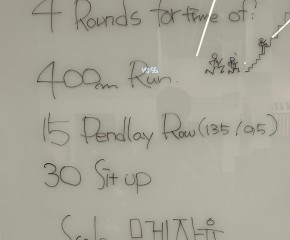 4 Rounds for time of:
400m Run.
15 Pendlay Row (135/95)
30 Sit up
Scale 무게 자유